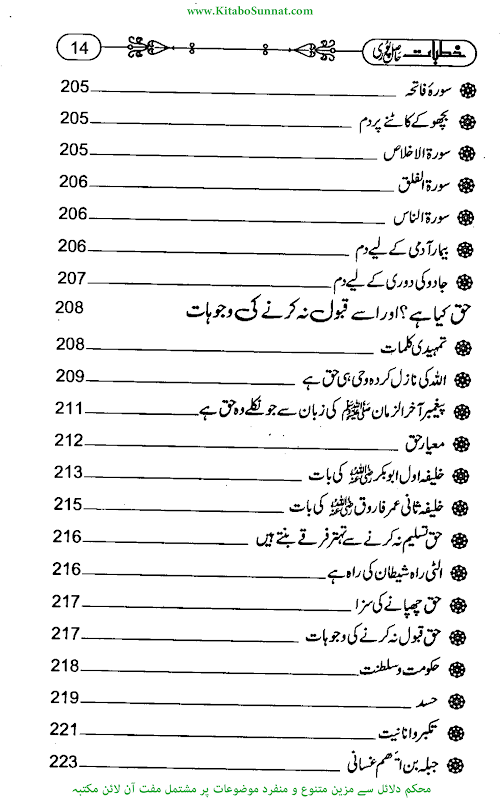 www.KitaboSunnat.com
خطبات حاصلپوری 14
سورۂ فاتحہ 205
بچھو کے کاٹنے پر دم 205
سورۃ الاخلاص 205
سورۃ الفلق 206
سورۃ الناس 206
بیمار آدمی کے لیے دم 206
جادو کی دوری کے لیے دم 207
حق کیا ہے؟ اور اسے قبول نہ کرنے کی وجوہات 208
تمہیدی کلمات 208
اللہ کی نازل کردہ وحی ہی حق ہے 209
پیغمبر آخر الزمان ﷺ کی زبان سے جو نکلے وہ حق ہے 211
معیار حق 212
خلیفہ اول ابوبکر رضی اللہ عنہ کی بات 213
خلیفہ ثانی عمر فاروق رضی اللہ عنہ کی بات 215
حق تسلیم نہ کرنے سے تہتر فرقے بنتے ہیں 216
الٹی راہ شیطان کی راہ ہے 216
حق چھپانے کی سزا 217
حق قبول نہ کرنے کی وجوہات 217
حکومت و سلطنت 218
حسد 219
تکبر و انانیت 221
جبلہ بن ایھم غسانی 223
محکم دلائل سے مزین متنوع و منفرد موضوعات پر مشتمل مفت آن لائن مکتبہ